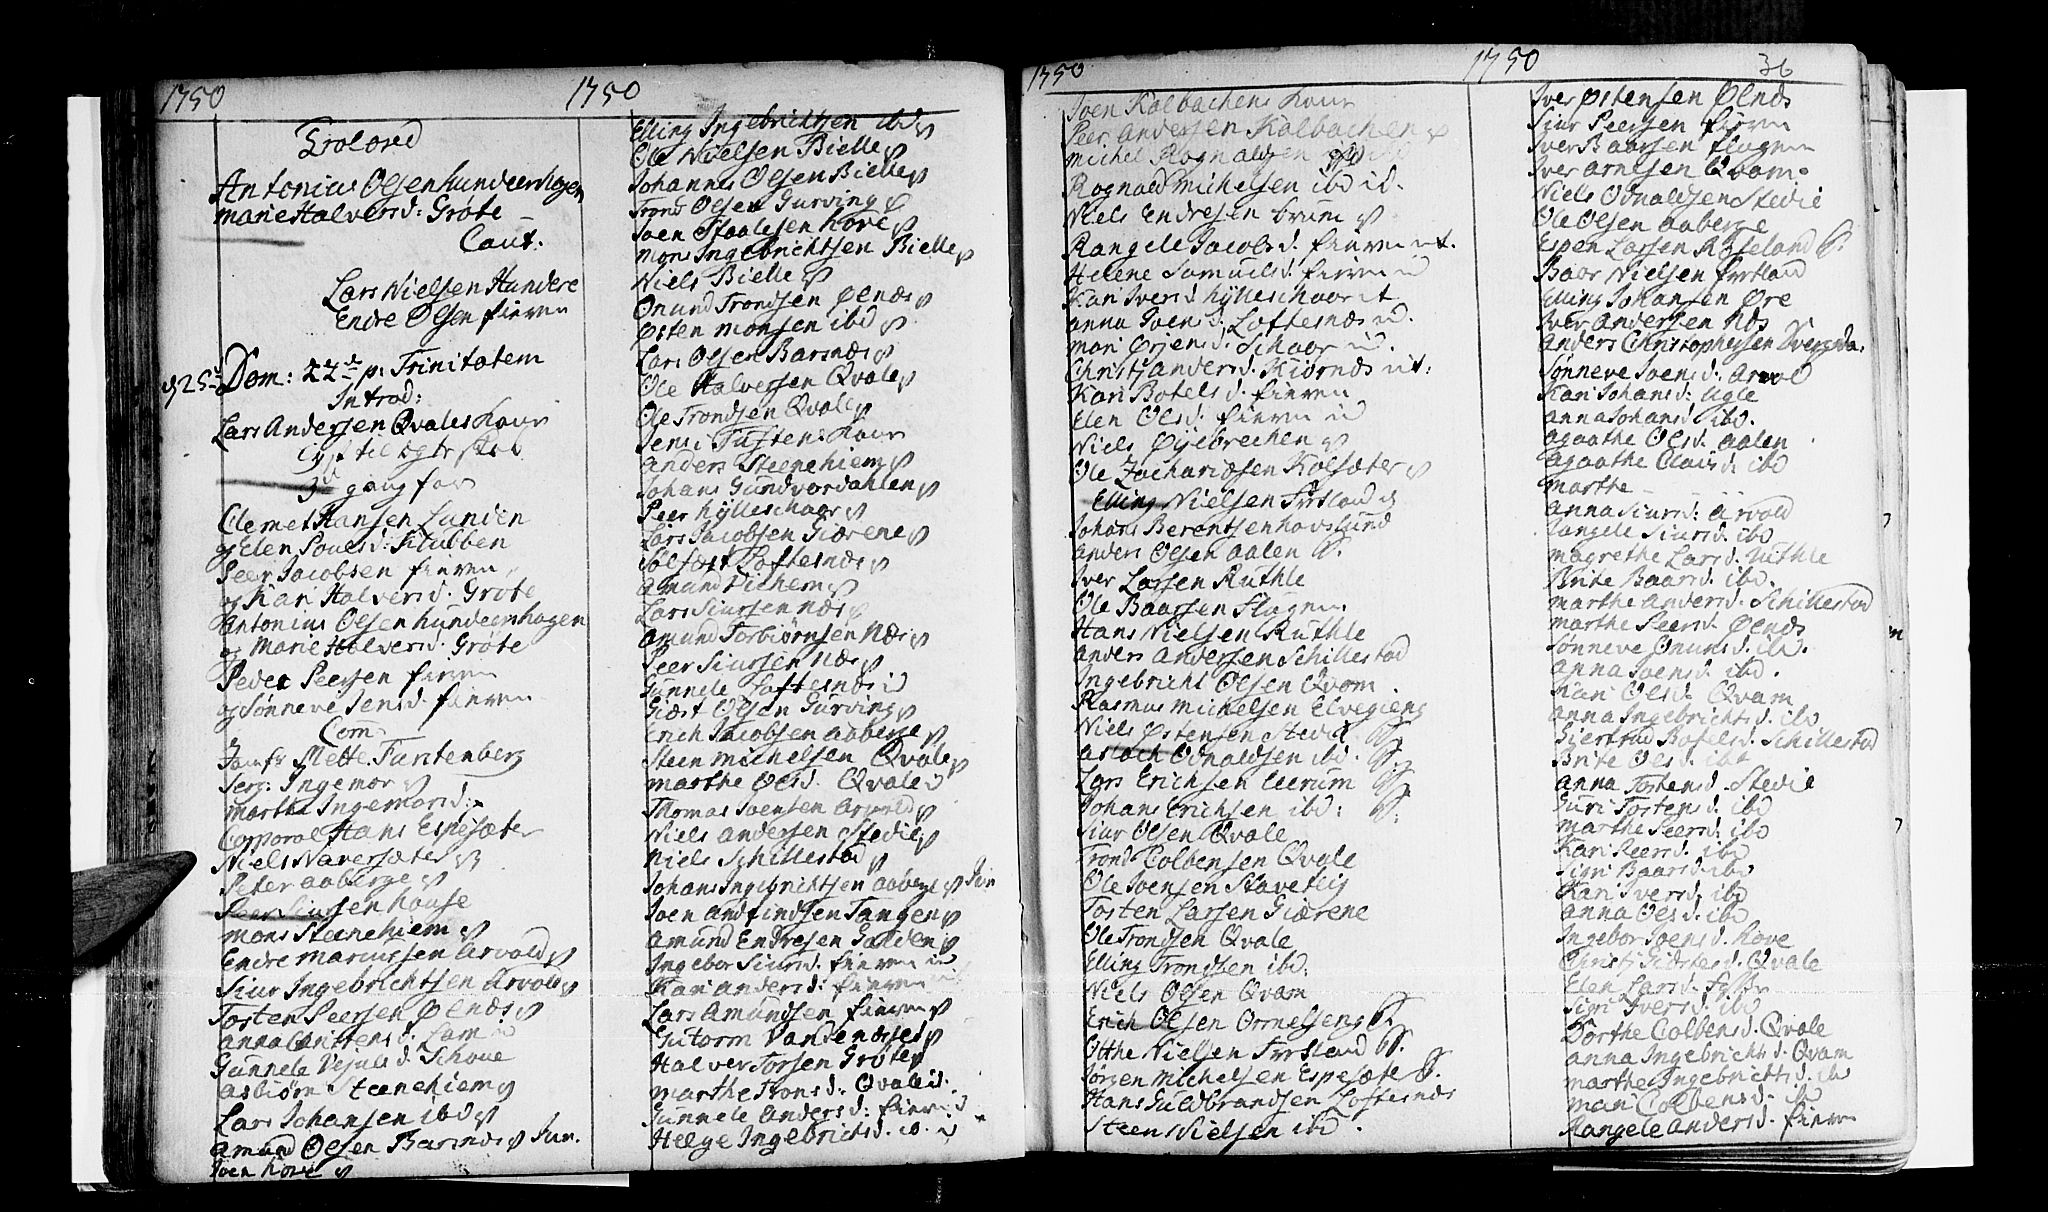 1750
1750
Troloved
Antonius Olsen hundeershagen
Marie Halvers d: Grøte
Caut:
Lars Nielsen Hundere
Endre Olsen fieren
d 25 Dom: 22 p: Trinitatem
Introd:
Lars Andersen Qvales Kone
Lyst til Egteskab
3 gang for
Clemet Hansen Lunden
og Elen Povels d: Stubben
Peer Jacobsen fieren
og Kari Halvers d. Grøte
Antonius Olsen hundeershagen
og Marie Halvers d. Grøte
Peder Peersen fieren
og Sønneve Jens d. fieren
Com:
Jomfr Mette Furstenberg
Serg: Ingemor
Marthe Ingemors d:
Corporal Hans Espesæter
Niels Naversæter
Peter aaberge
Peer Siursen house
Mons Steenehiem
Endre Marcussen Arvold
Siur Ingebrichtsen Arvold
Torsten Peersen Ølnæs
Anna d. Lam
Gunnele d. Schoue
Asbiørn Steenehiem
Lars Johansen ibd
Amund Olsen Barsnes Jun.
Joen hove
Elling Ingebrichtsen ibd
Ole Nielsen Bielle
Johannes Olsen Bielle
Trond Olsen Gurving
Joen Staalesen hove
Mons Ingebrichtsen Bielle
Niels Bielle
Onund Trondsen Ølnæs
Østen Monsen ibd
Lars Olsen Barsnæs
Ole Halversen Qvale
Ole Trondsen Qvale
Kone
Anders Steenehiem
Johans Gundvordahlen
Peer hylleschaar
Lars Jacobsen Giærene
Sølfæst Loftesnæs
Amund Vichem
Lars Siursen næs
Amund Torbiørnsen Næs
Peer Siursen Næs
Gunnele Loftesnæs id
Giæst Olsen Gurving
Erich Jacobsen aaberge
Steen Michelsen Qvale
Marthe Ols d. Qvale
Thomas Joensen Arvold
Niels Andersen Stedie
Niels Schillestad
Johans Ingebrichtsen aaberge Jun
Joen Andfindsen Tangen
Amund Endresen Galden
Ingebor Siurs d. fieren id
Kari Anders d: fieren
Lars Amundsen fieren
Gutorm Vandenæsset
Halver Torsen Grøte
Marthe Trons d. Qvale id.
Gunnele Anders d: fieren id
Helge Ingebrichts d. ib. id
1750
1750
36
Joen Kalbachens Kone
Peer Andersen Kalbachen
Michel Rognaldsen
Rognald Michelsen ibd id.
Niels Endresen brum
Rangele Jacobs d. fieren it.
Helene Samuels d. fieren id
Kari Ivers d hylleschaar it
Anna Joens d. Loftesnæs id.
Mari Ørjens d. Schaar id.
Christj Anders d. Kiørnes it:
Kari Botels d. fieren
Elen Ols d: fieren id
Niels Øyebrechen
Ole Zachariæsen Kolsæter
Elling Nielsen Fystland
Johans Berentsen hovslund
Anders Olsen aalen
Iver Larsen Ruthle
Ole Baarsen Flugem
Hans Nielsen Ruthle
Anders Andersen Schillestad
Ingebricht Olsen Qvam
Rasmus Michelsen Elvegieng
Niels Østensen Stedie
Aslach Odnaldsen ibd.
Lars Erichsen Eerum
Johans Erichsen ibd:
Siur Olsen Qvale
Trond Colbensen Qvale
Ole Joensen Staveteig
Tosten Larsen Giærene
Ole Trondsen Qvale
Elling Trondsen ibd.
Niels Olsen Qvam
Erich Olsen Ormelseng
Otthe Nielsen Fystland
Jørgen Michelsen Espesæter
Hans Guldbrandsen Loftesnæs
Steen Nielsen ibd.
Iver Østensen Ølnæs
Siur Peersen fieren
Iver Baarsen flugem
Iver Arnesen Qvam
Niels Odnaldsen Stedie
Ole Olsen aaberge
Espen Larsen
Baar Nielsen Fystland
Elling Johansen Øre
Iver Andersen Næs
Anders Christophersen
Sønneve Joens d. Arvol
Kari Johans d: Ugle
Anna Johans d ibd.
Agaathe Ols d. aalen
Agaathe Claus d: ibd
Marthe
Anna Siurs d: Arvold
Rangele Siurs d. ibd
Magrethe Lars d. Ruthle
Brite Baars d. ibd.
Marthe Anders d. Schillestad
Marthe Peers d. Ølnæs
Sønneve Onuns d. ib.
Anna Joens d. ibd.
Kari Ols d. Qvam
Anna Ingebrichts d. ibd
Giertrud Botels d. Schillestad
Brite Ols d. ibd
Anna Tostens d. Stedie
Guri Tostens d. ibd
Marthe Peers d: ibd
Kari Peers d. ibd
Sigri Baars d. ibd
Kari Ivers d. ibd
Anna Ols d. ibd
Ingebor Joens d. hove
Christj d. Qvale
Elen Lars d.
Sigri Ivers d. ibd
Dorthe Colbens d. Qvale
Anna Ingebrichts d. Qvam
Marthe Ingebrichts d. ib
Mari Colbens d. ib
Rangele Anders d. fieren